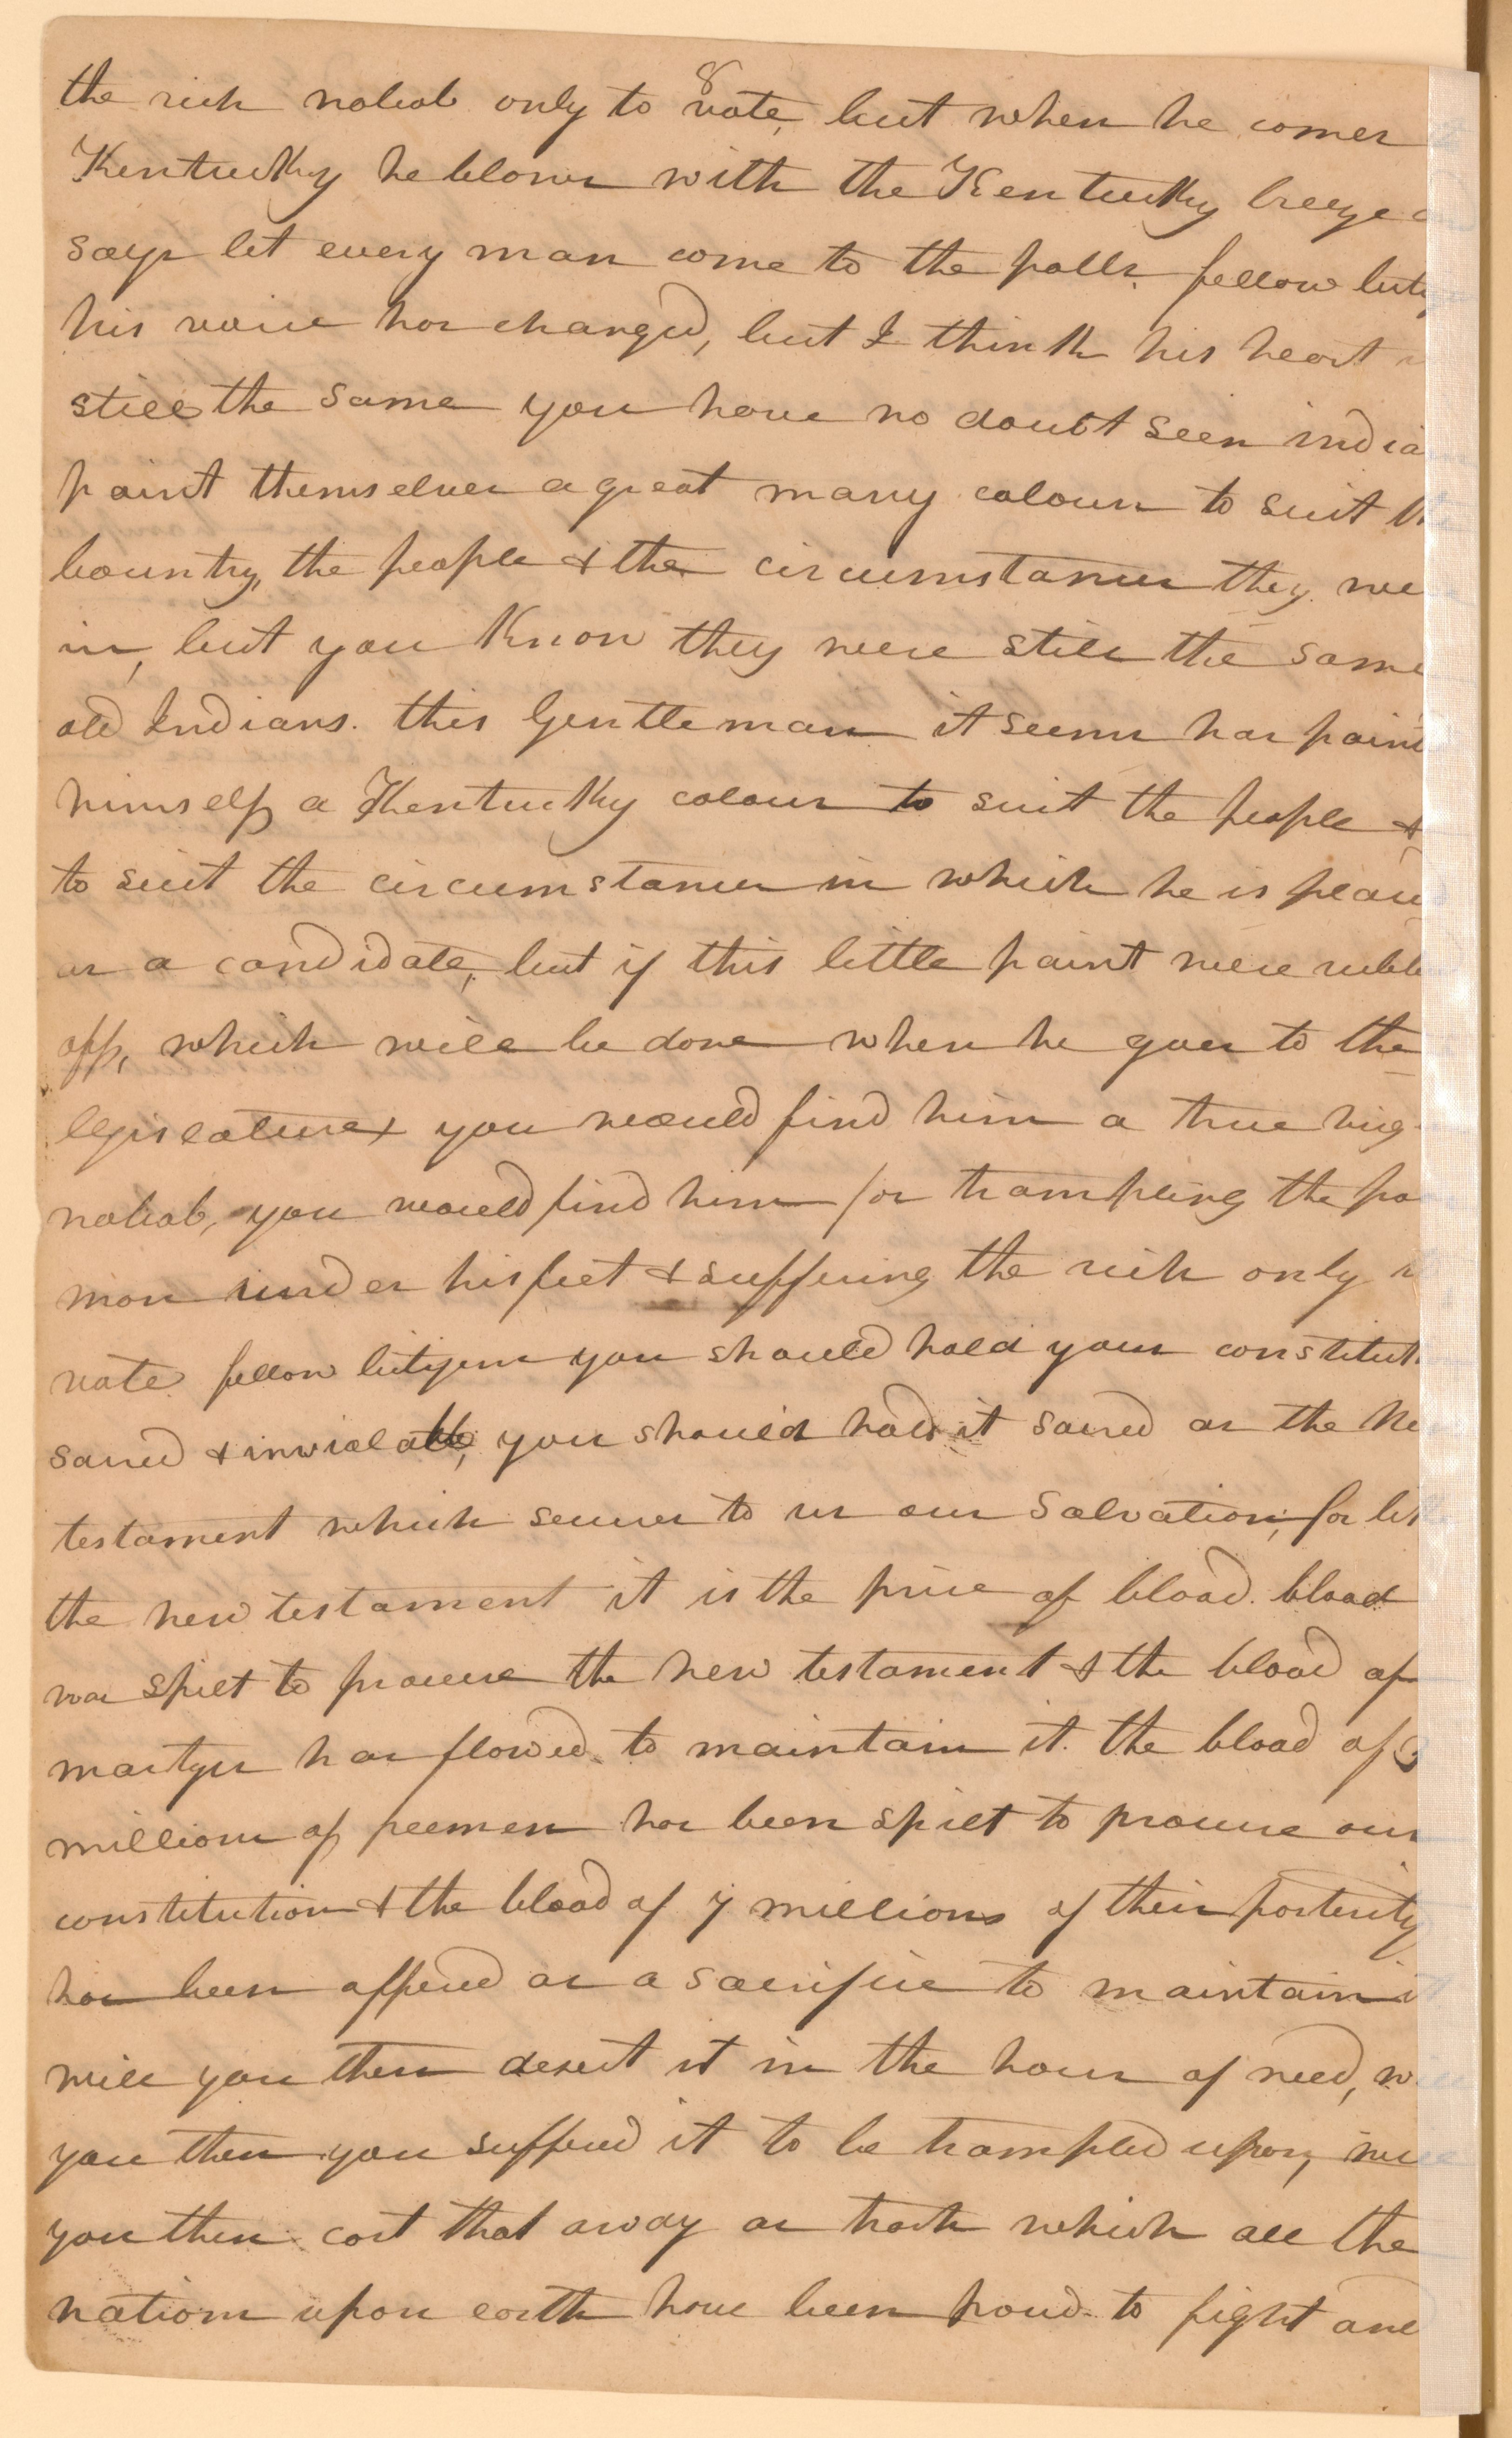 8
the rich nabob only to vote, but when he comes
Kentucky he blows with the Kentucky breeze
says let every man come to the polls. fellow citiz
his voice has changed, but I think his heart
still the same you have no doubt seen india
paint themselves a great many colours to suit th
Country, the people & the circumstances they we
in, but you know they were still the same
old Indians. this Gentleman it seems has paint
himself a Kentucky colour to suit the people &
to suit the circumstances in which he is place
as a candidate, but if this little paint were rubb
off, which will be done when he goes to the
legislature you would find him a true big
nabob, you would find him for trampling the po
man under his feet & suffering the rich only
vote fellow citizens you should hold your constitut
sacred & inviolable, you should hold it sacred as the Ne
testament which secures to us our salvation, for li
the new testament it is the price of blood. blood
was spilt to procure the new testament & the blood of
martyrs has flowed to maintain it. the blood of 3
millions of freemen has been spilt to procure our
constitution & the blood of 7 millions of their posterity
has been offered as a sacrifice to maintain i
will you then desert it in the hour of need, w
you then you suffered it to be trampled upon, will
you then cast that away as trash which all the
nations upon earth have been proud to fight and